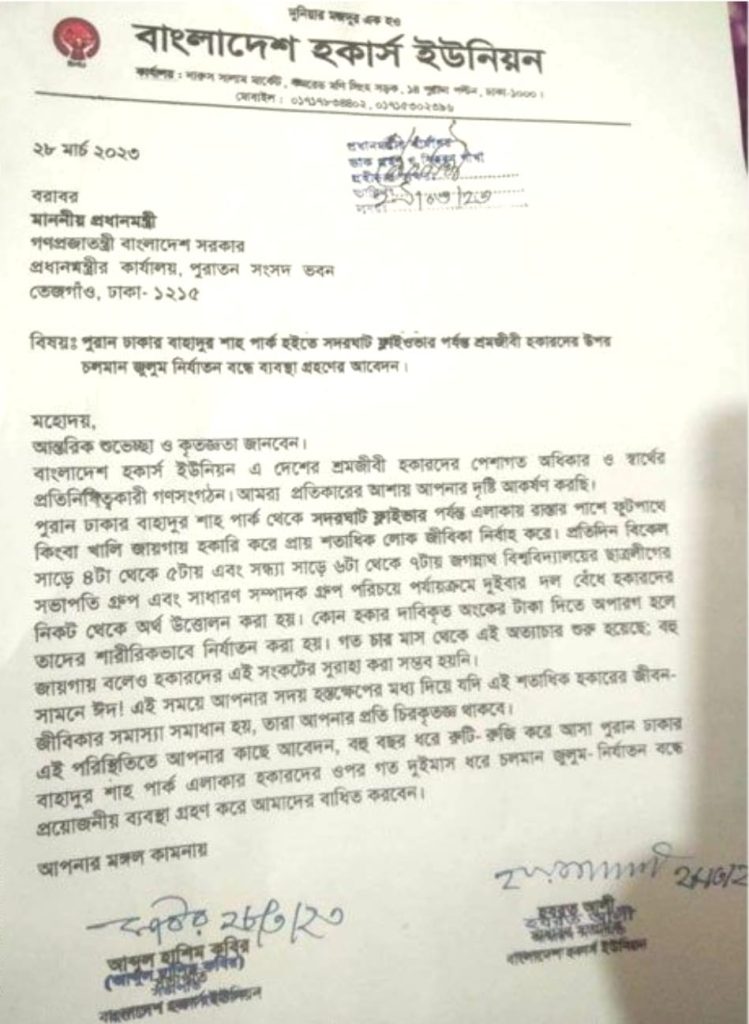 দুনিয়ার মজদুর এক হও
বাংলাদেশ হকার্স ইউনিয়ন
কার্যালয় : দারুস সালাম মার্কেট, কমরেড মণি সিংহ সড়ক, ১৪ পুরানা পল্টন, ঢাকা-১০০০।
মোবাইল :
২৮ মার্চ ২০২৩
বরাবর
মাননীয় প্রধানমন্ত্রী
গণপ্রজাতন্ত্রী বাংলাদেশ সরকার
প্রধানমন্ত্রীর কার্যালয়, পুরাতন সংসদ ভবন
তেজগাঁও, ঢাকা- ১২১৫
বিষয়ঃ পুরান ঢাকার বাহাদুর শাহ পার্ক হইতে সদরঘাট ফ্লাইওভার পর্যন্ত শ্রমজীবী হকারদের উপর
চলমান জুলুম নির্যাতন বন্ধে ব্যবস্থা গ্রহণের আবেদন।
মহোদয়,
আন্তরিক শুভেচ্ছা ও কৃতজ্ঞতা জানবেন।
বাংলাদেশ হকার্স ইউনিয়ন এ দেশের শ্রমজীবী হকারদের পেশাগত অধিকার ও স্বার্থের
প্রতিনিধিত্বকারী গণসংগঠন। আমরা প্রতিকারের আশায় আপনার দৃষ্টি আকর্ষণ করছি।
পুরান ঢাকার বাহাদুর শাহ পার্ক থেকে সদরঘাট ফ্লাইভার পর্যন্ত এলাকায় রাস্তার পাশে ফুটপাথে
কিংবা খালি জায়গায় হকারি করে প্রায় শতাধিক লোক জীবিকা নির্বাহ করে। প্রতিদিন বিকেল
সাড়ে ৪টা থেকে ৫টায় এবং সন্ধ্যা সাড়ে ৬টা থেকে ৭টায় জগন্নাথ বিশ্ববিদ্যালয়ের ছাত্রলীগের
সভাপতি গ্রুপ এবং সাধারণ সম্পাদক গ্রুপ পরিচয়ে পর্যায়ক্রমে দুইবার দল বেঁধে হকারদের
নিকট থেকে অর্থ উত্তোলন করা হয়। কোন হকার দাবিকৃত অংকের টাকা দিতে অপারগ হলে
তাদের শারীরিকভাবে নির্যাতন করা হয়। গত চার মাস থেকে এই অত্যাচার শুরু হয়েছে; বহু
জায়গায় বলেও হকারদের এই সংকটের সুরাহা করা সম্ভব হয়নি।
সামনে ঈদ! এই সময়ে আপনার সদয় হস্তক্ষেপের মধ্য দিয়ে যদি এই শতাধিক হকারের জীবন-
জীবিকার সমাস্যা সমাধান হয়, তারা আপনার প্রতি চিরকৃতজ্ঞ থাকবে।
এই পরিস্থিতিতে আপনার কাছে আবেদন, বহু বছর ধরে রুটি- রুজি করে আসা পুরান ঢাকার
বাহাদুর শাহ পার্ক এলাকার হকারদের ওপর গত দুইমাস ধরে চলমান জুলুম- নির্যাতন বন্ধে
প্রয়োজনীয় ব্যবস্থা গ্রহণ করে আমাদের বাধিত করবেন।
আপনার মঙ্গল কামনায়
২৮/৩/২৩
আব্দুল হাশিম কবির
(আব্দুল হাশিম কবির)
সভাপতি
বাংলাদেশ হকার্স ইউনিয়ন
হযরত আলী
বাংলাদেশ হকার্স ইউনিয়ন